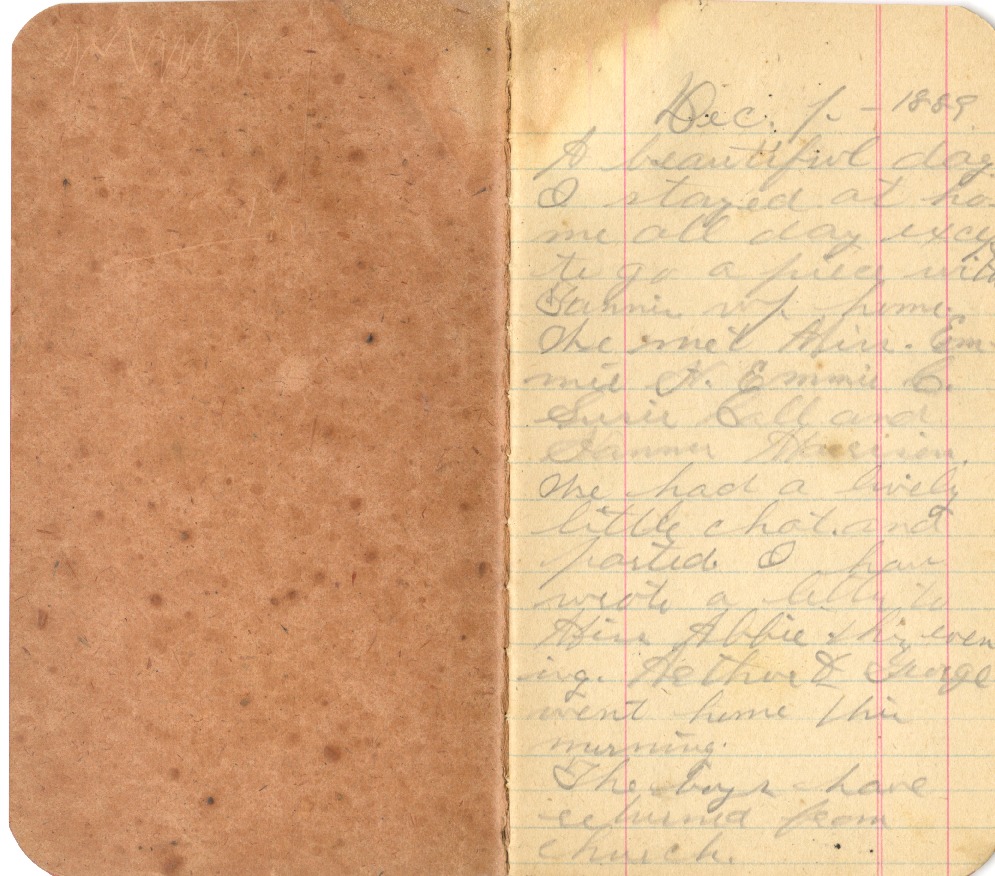 Dec. 1. - 1889
A beautiful day
I stayed at ho-
me all day except
to go a piece with
Fannie home.
She met Miss. Em-
mie H. Emmie C.
Susie Ball and
Fannie Harrison.
She had a lively
little chat. and
parted. I have
wrote a letter to
Miss Abbie this even
ing. Arthur & George
went home this
morning.
The boys have
returned from
church.